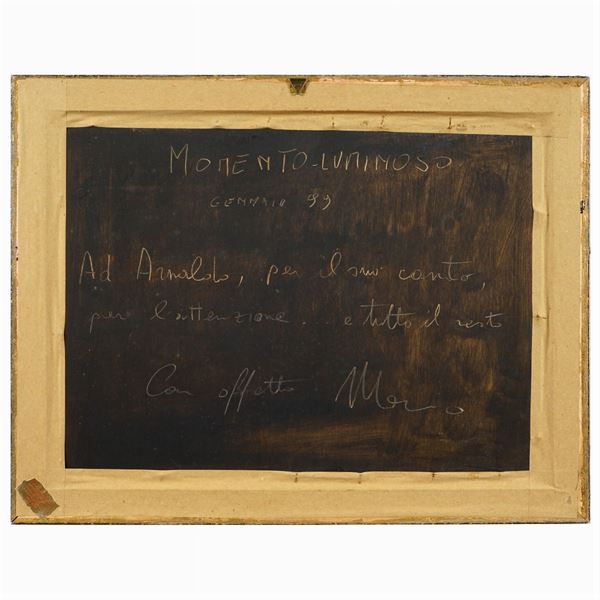 MOMENTO-LUMINOSO
GENNAIO 99
Ad Arnaldo, per il suo canto,
per l'attenzione... e tutto il resto
Con affetto